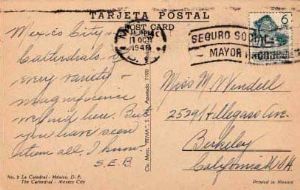 TARJETA POSTAL
POST CARD
11 OCT
1948
6
SEGURO SOCIAL
MAYOR
Mexico City
Cathedrals of
every variety
magnificence
and here. But
you have seen
them all, I know.
S.E.B.
Miss M. Windell
2529 Hillegass Ave.
Berkeley
California U.S.A.
No. 2 La Catedral - México, D. F.
The Cathedral - Mexico City
Printed in Mexico